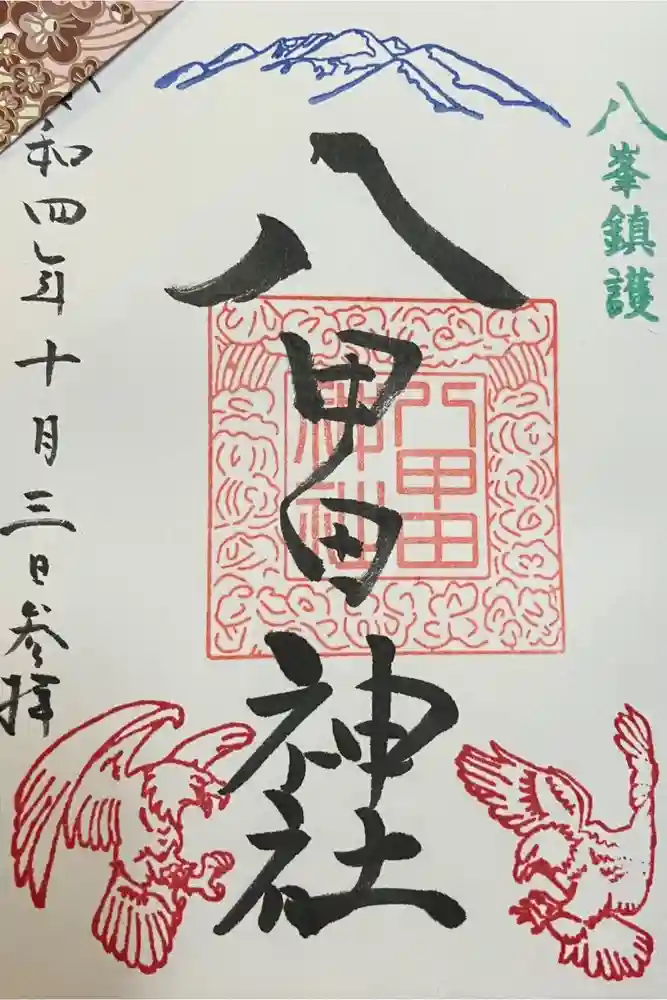 八峯鎮護
八甲田神社
八甲田
神社
令和四年十月三日参拝